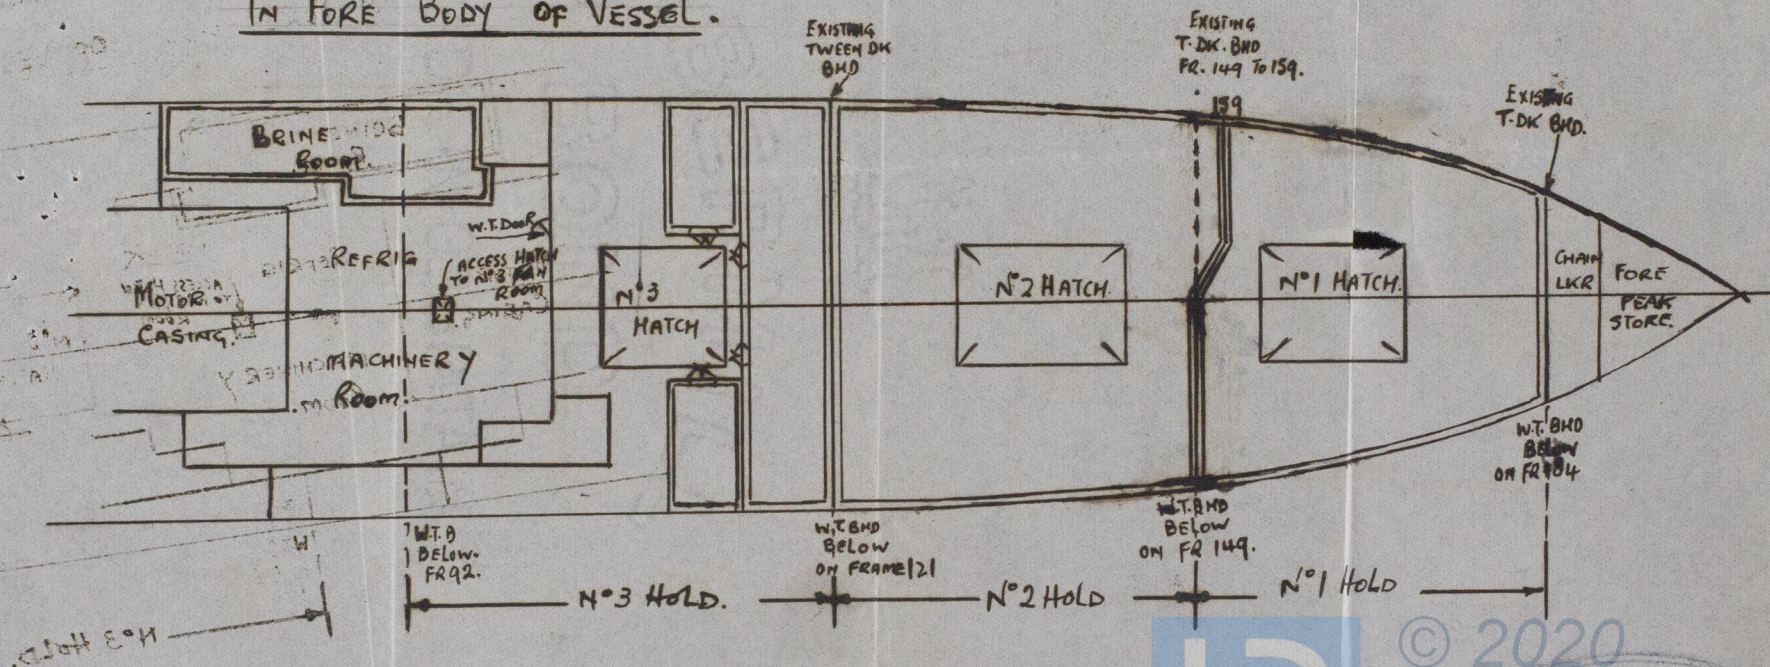 IN FORE BODY OF VESSEL.
EXISTING
TWEEN DK
BHD
EXISTING
T. DK. BHD
FR. 149 TO 159.
159
EXISTING
T. DK BHD.
BRINE
ROOM.
W.T. DOOR
REFRIG
MACHINERY
ROOM.
ACCESS HATCH
TO Nº3 FAN
ROOM
MOTOR
CASING.
Nº3
HATCH
Nº2 HATCH.
Nº1 HATCH.
CHAIN
LKR
FORE
PEAK
STORE.
W.T.B
BELOW.
FR92.
W.T. BHD
BELOW
ON FRAME 121
W.T. BHD
BELOW
ON FR 149.
W.T. BHD
BELOW
ON FR 184
Nº3 HOLD.
Nº2 HOLD
Nº1 HOLD
Nº3 HOLD.
© 2020